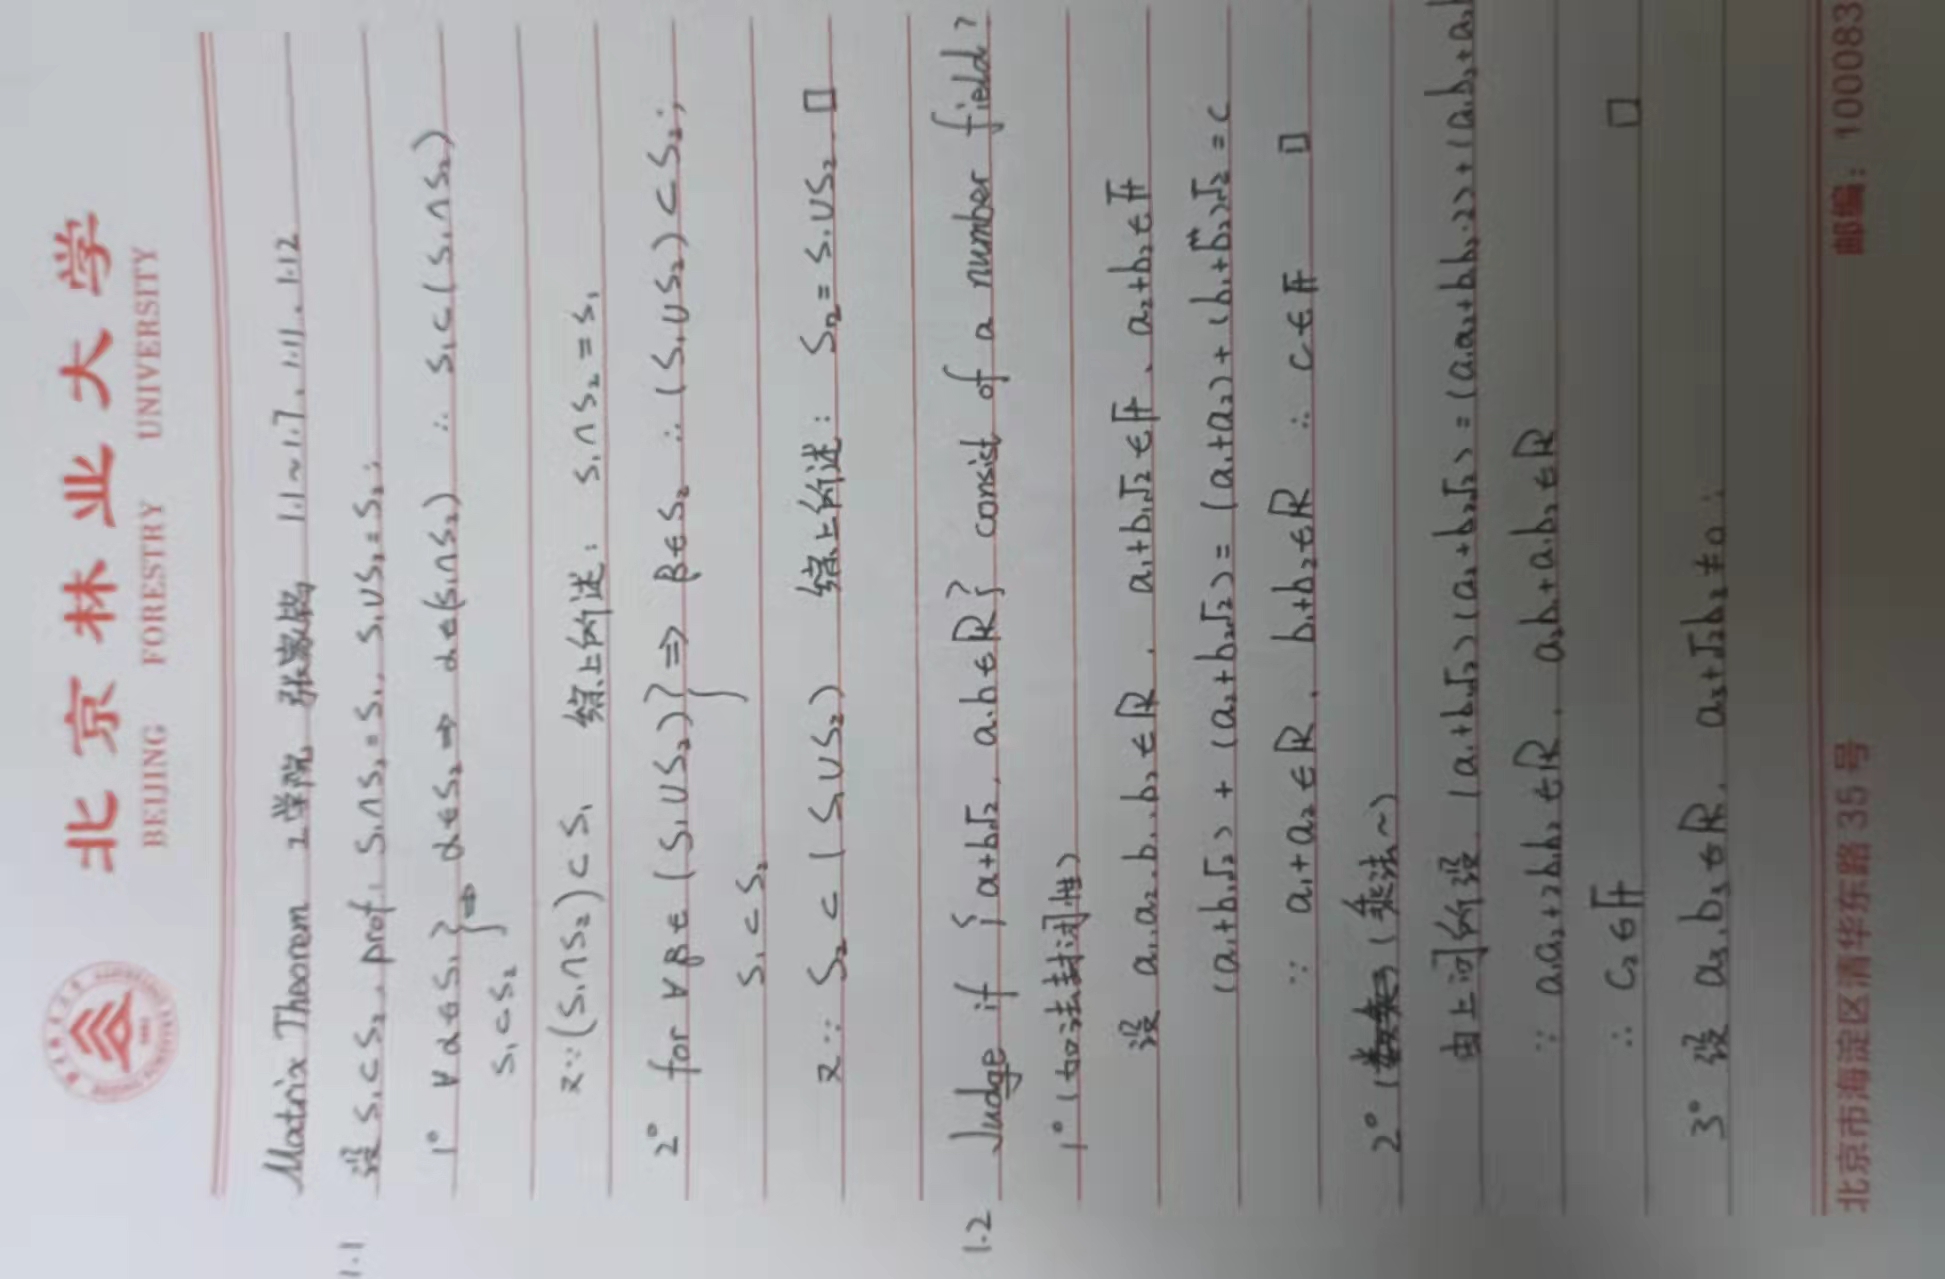 北京林业大学
BEIJING FORESTRY UNIVERSITY
Matrix Theorem 工学院 张嘉 1.1~1.7、1.11、1.12
1.1 设 S₁⊂S₂, prof: S₁∩S₂=S₁, S₁∪S₂=S₂:
1° ∀α∈S₁ } ⇒ α∈S₂ ⇒ α∈(S₁∩S₂) ∴ S₁⊂(S₁∩S₂)
S₁⊂S₂
又∵(S₁∩S₂)⊂S₁ 综上所述: S₁∩S₂=S₁
2° for ∀β∈(S₁∪S₂) } ⇒ β∈S₂ ∴ (S₁∪S₂)⊂S₂;
S₁⊂S₂
又∵ S₂⊂(S₁∪S₂) 综上所述: S₂=S₁∪S₂. □
1.2 Judge if {a+b√2, a.b∈R} consist of a number field?
1° (加法封闭性)
设 a₁.a₂.b₁.b₂∈R, a₁+b₁√2∈F、a₂+b₂∈F
(a₁+b₁√2)+(a₂+b₂√2)=(a₁+a₂)+(b₁+b₂)√2=c
∵ a₁+a₂∈R, b₁+b₂∈R ∴ c∈F □
2° (乘法~)
由上问所设, (a₁+b₁√2)(a₂+b₂√2)=(a₁a₂+b₁b₂·2)+(a₁b₂+a₂b
∵ a₁a₂+2b₁b₂∈R, a₂b₁+a₁b₂∈R
∴ C₂∈F □
3° 设 a₃.b₃∈R, a₃+√2b₃≠0:
北京市海淀区清华东路35号 邮编:100083